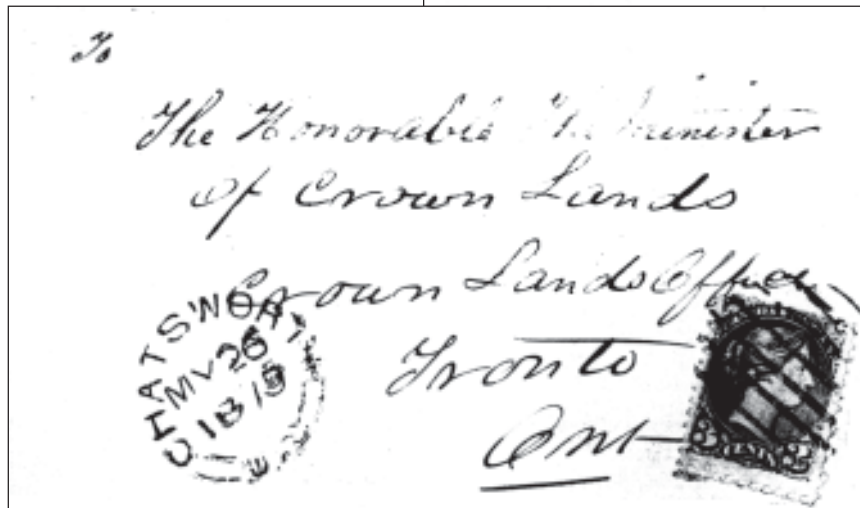 To
The Honorable The Minister
of Crown Lands
Crown Lands Office
Tronto
Ont
CHATSWORTH
MY 26
3 CENTS 3